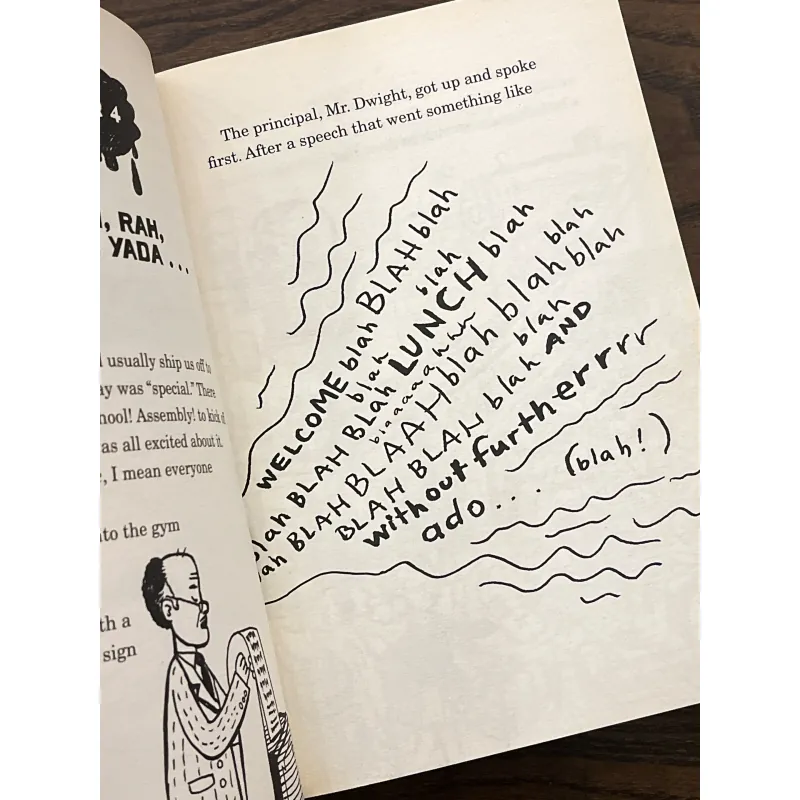 4
RAH,
YADA...
usually ship us off to
was "special." There
Assembly! to kick
as all excited about it.
, I mean everyone
to the gym
a
sign
The principal, Mr. Dwight, got up and spoke
first. After a speech that went something like
WELCOME blah BLAH blah
blah blah
blah BLAH BLah LUNCH blah
blaaaaaahhh blah
blah BLAH BLAAH blah blah blah
blah
BLAH BLAH blah AND
without furtherrrr
ado... (blah!)